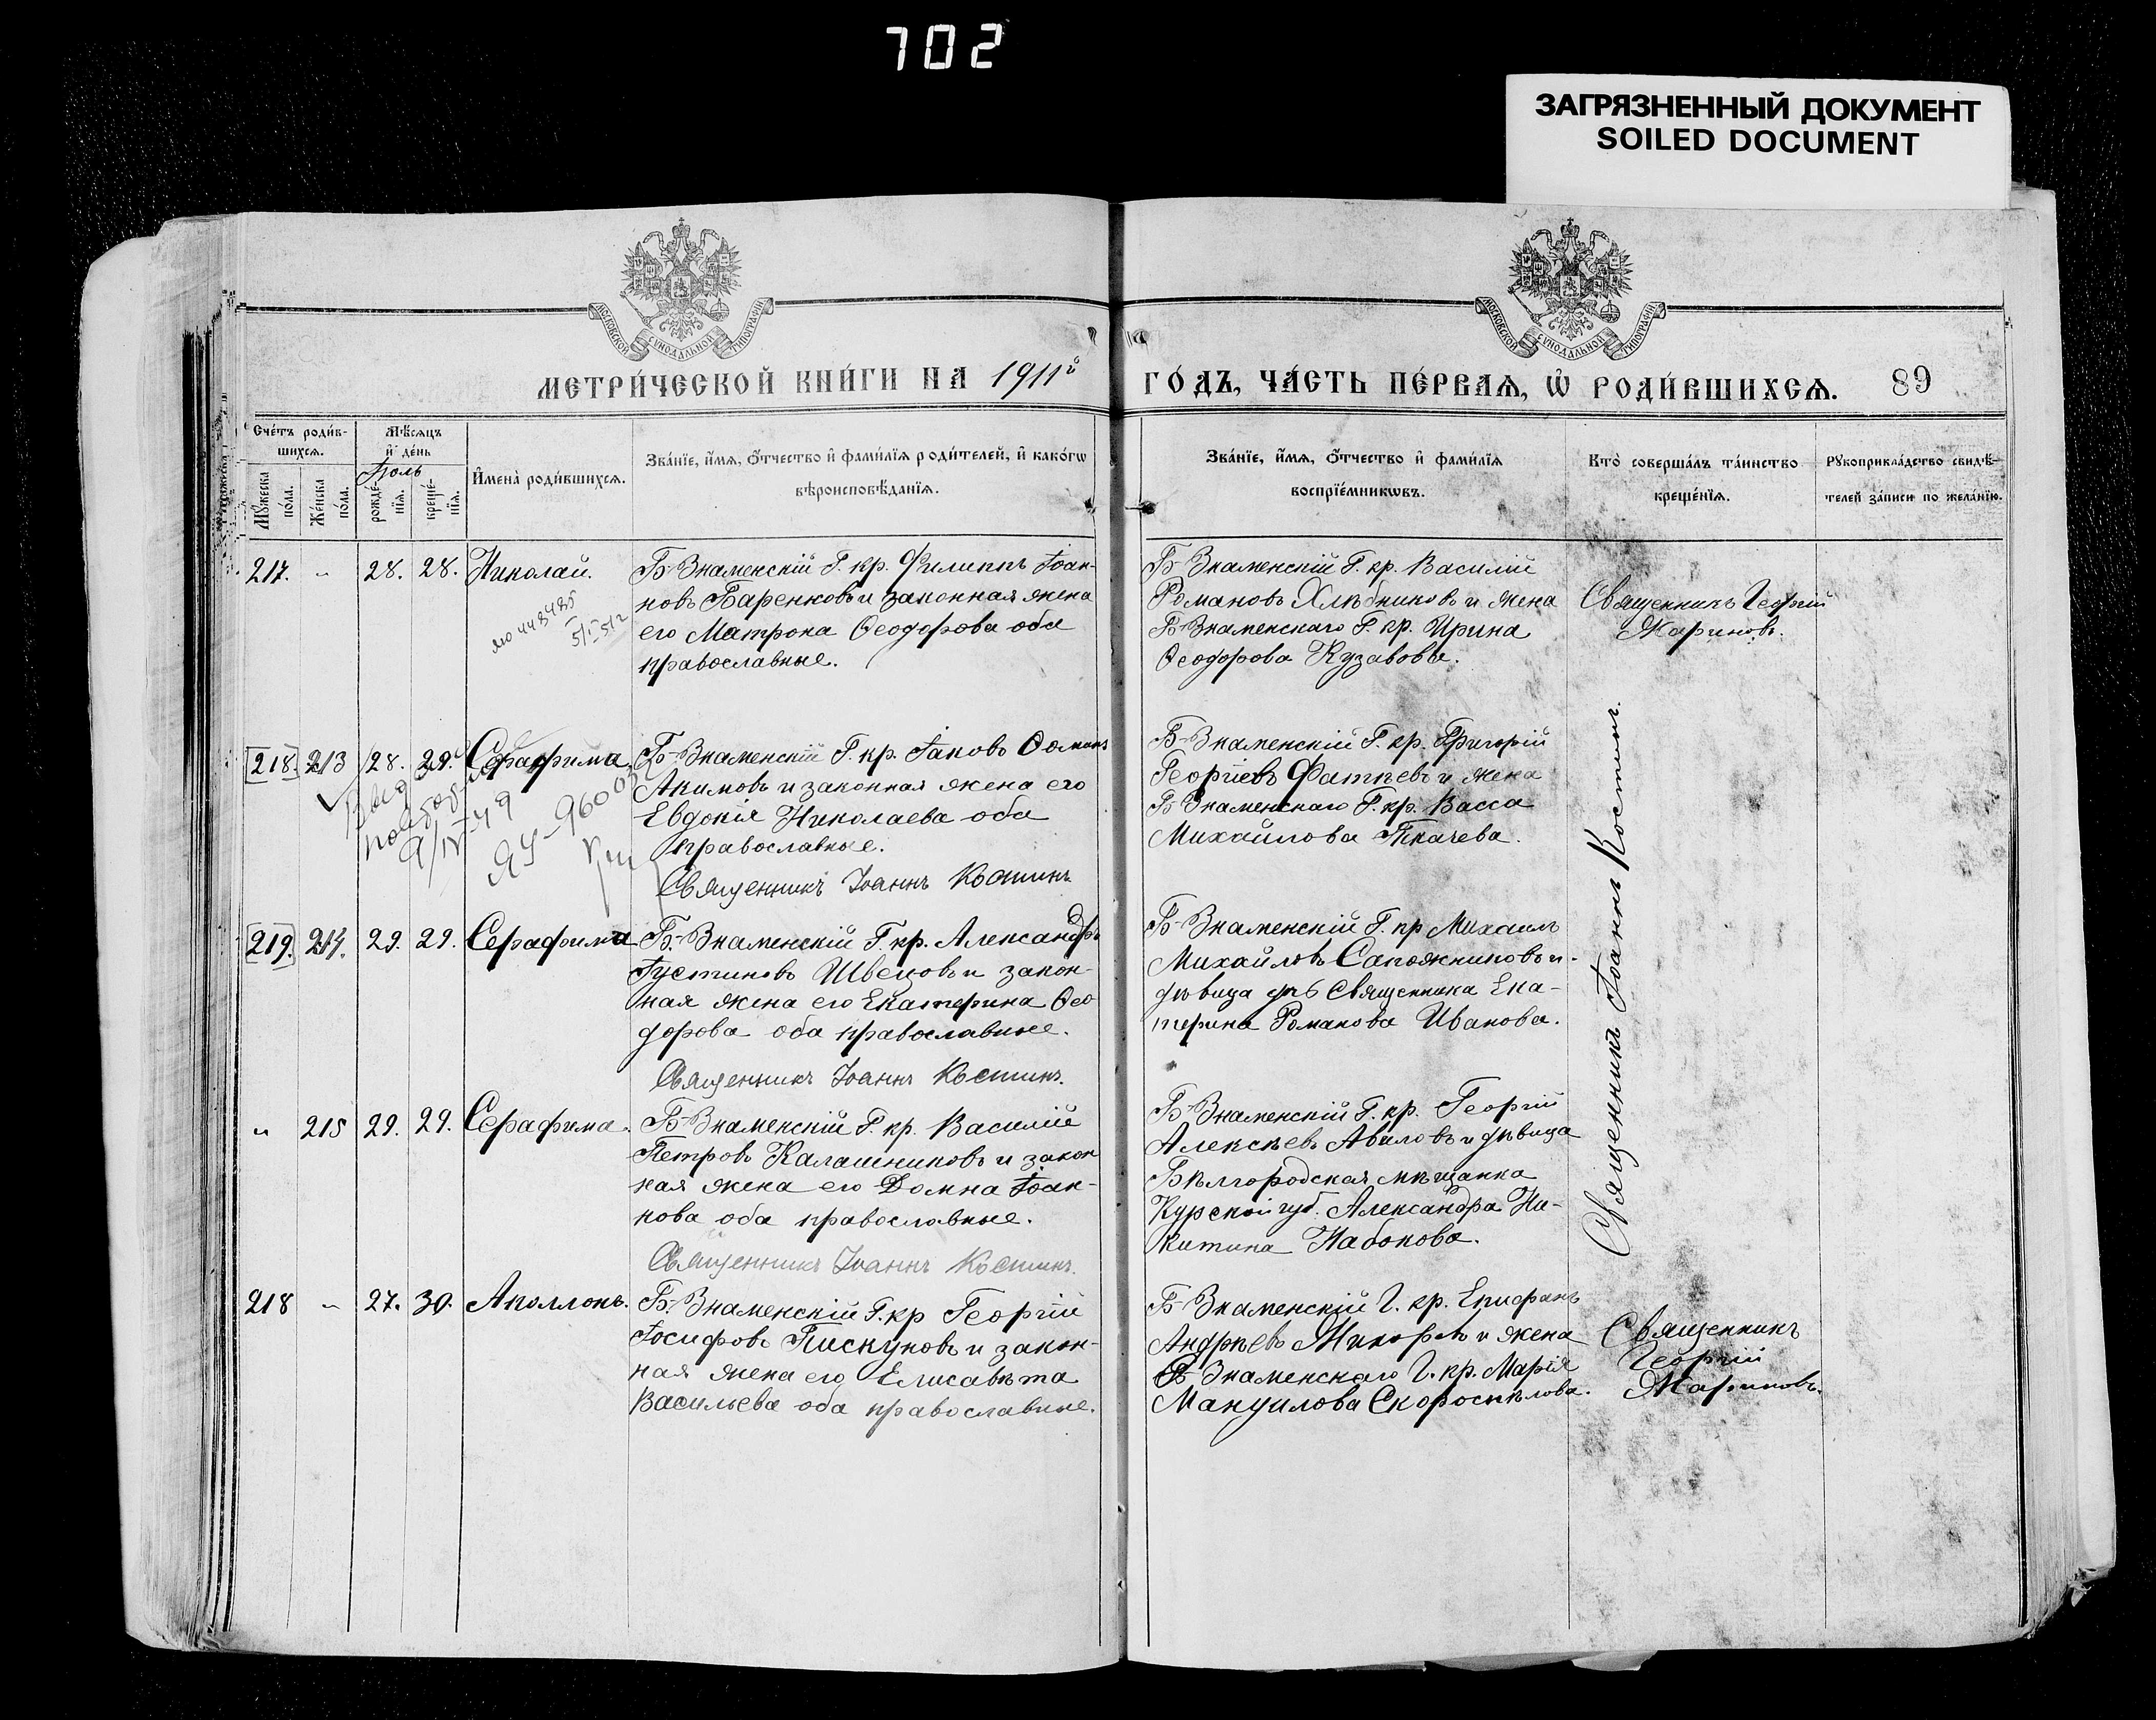 702
ЗАГРЯЗНЕННЫЙ ДОКУМЕНТ
SOILED DOCUMENT
МОСКОВСКОЙ СУНОДАЛЬНОЙ ТИПОГРАФІИ
МОСКОВСКОЙ СУНОДАЛЬНОЙ ТИПОГРАФІИ
МЕТРИ́ЧЕСКОЙ КНИ́ГИ НА 1911й
ГО́ДЪ, ЧА́СТЬ ПЕ́РВАѦ, Ѡ҆ РОДИ́ВШИХСѦ. 89
Сче́тъ роди́в-
шихсѧ.
Мꙋ́жеска по́ла.
Же́нска по́ла.
Мѣ́сѧцъ
и҆ де́нь
Іюль
рожде́-
нїѧ.
креще́-
нїѧ.
И҆мена̀ роди́вшихсѧ.
Зва́нїе, и҆́мѧ, ѻ҆́тчество и҆ фами́лїѧ роди́телей, и҆ како́гѡ
вѣроисповѣ́данїѧ.
Зва́нїе, и҆́мѧ, ѻ҆́тчество и҆ фами́лїѧ
воспрїе́мникѡвъ.
Кто̀ соверша́лъ та́инство
креще́нїѧ.
Рꙋкоприкла́дство свидѣ́-
телей за́писи по жела́нїю.
217. " 28. 28. Николай.
448485
5/I 512
Б-Знаменскій Г. кр. Филиппъ Іоан-
новъ Баренковъ и законная жена
его Матрона Ѳеодорова оба
православные.
Б-Знаменскій Г. кр. Василій
Романовъ Хлѣбниковъ и жена
Б-Знаменскаго Г. кр. Ирина
Ѳеодорова Кузавова.
Священникъ Георгій
Жариновъ.
218. 213 28. 29. Серафима.
9/IV-49
ЯУ-96003
Б-Знаменскій Г. кр. Іаковъ Ѳоминъ
Акимовъ и законная жена его
Евдокія Николаева оба
православные.
Священникъ Іоаннъ Костинъ
Б-Знаменскій Г. кр. Григорій
Георгіевъ Фатѣевъ и жена
Б-Знаменскаго Г. кр. Васса
Михайлова Ткачева.
Священникъ Іоаннъ Костинъ.
219. 214. 29. 29. Серафима
Б-Знаменскій Г. кр. Александръ
Іустиновъ Швецовъ и закон-
ная жена его Екатерина Ѳео
дорова оба православные.
Священникъ Іоаннъ Костинъ.
Б-Знаменскій Г. кр Михаилъ
Михайловъ Сапожниковъ и
дѣвица Священника Ека-
терина Романова Иванова.
" 215 29. 29. Серафима.
Б-Знаменскій Г. кр. Василій
Петровъ Калашниковъ и закон
ная жена его Домна Іоан-
нова оба православные.
Священникъ Іоаннъ Костинъ.
Б-Знаменскій Г. кр. Георгій
Алексѣевъ Авиловъ и дѣвица
Бѣлгородская мѣщанка
Курской губ. Александра Ни-
китина Набокова.
218 " 27. 30. Аполлонъ.
Б. Знаменскій Г. кр Георгій
Іосифовъ Пискуновъ и закон-
ная жена его Елисавѣта
Васильева оба православные.
Б-Знаменскій Г. кр. Епифанъ
Андрѣевъ и жена
Б-Знаменскаго Г. кр. Марія
Мануилова Скороспѣлова.
Священникъ
Георгій
Жариновъ.